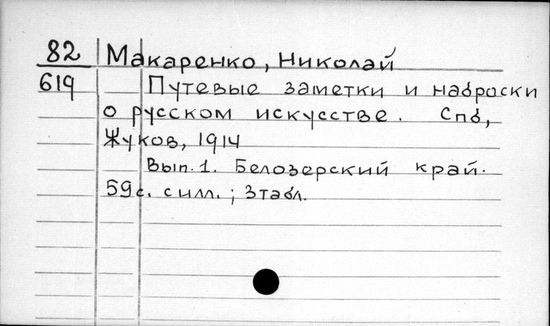 82 Макаренко, Николай
619 Путевые заметки и наброски
о русском искусстве. Спб,
Жуков, 1914
Вып. 1. Белозерский край.
59с. с илл.; 3 табл.